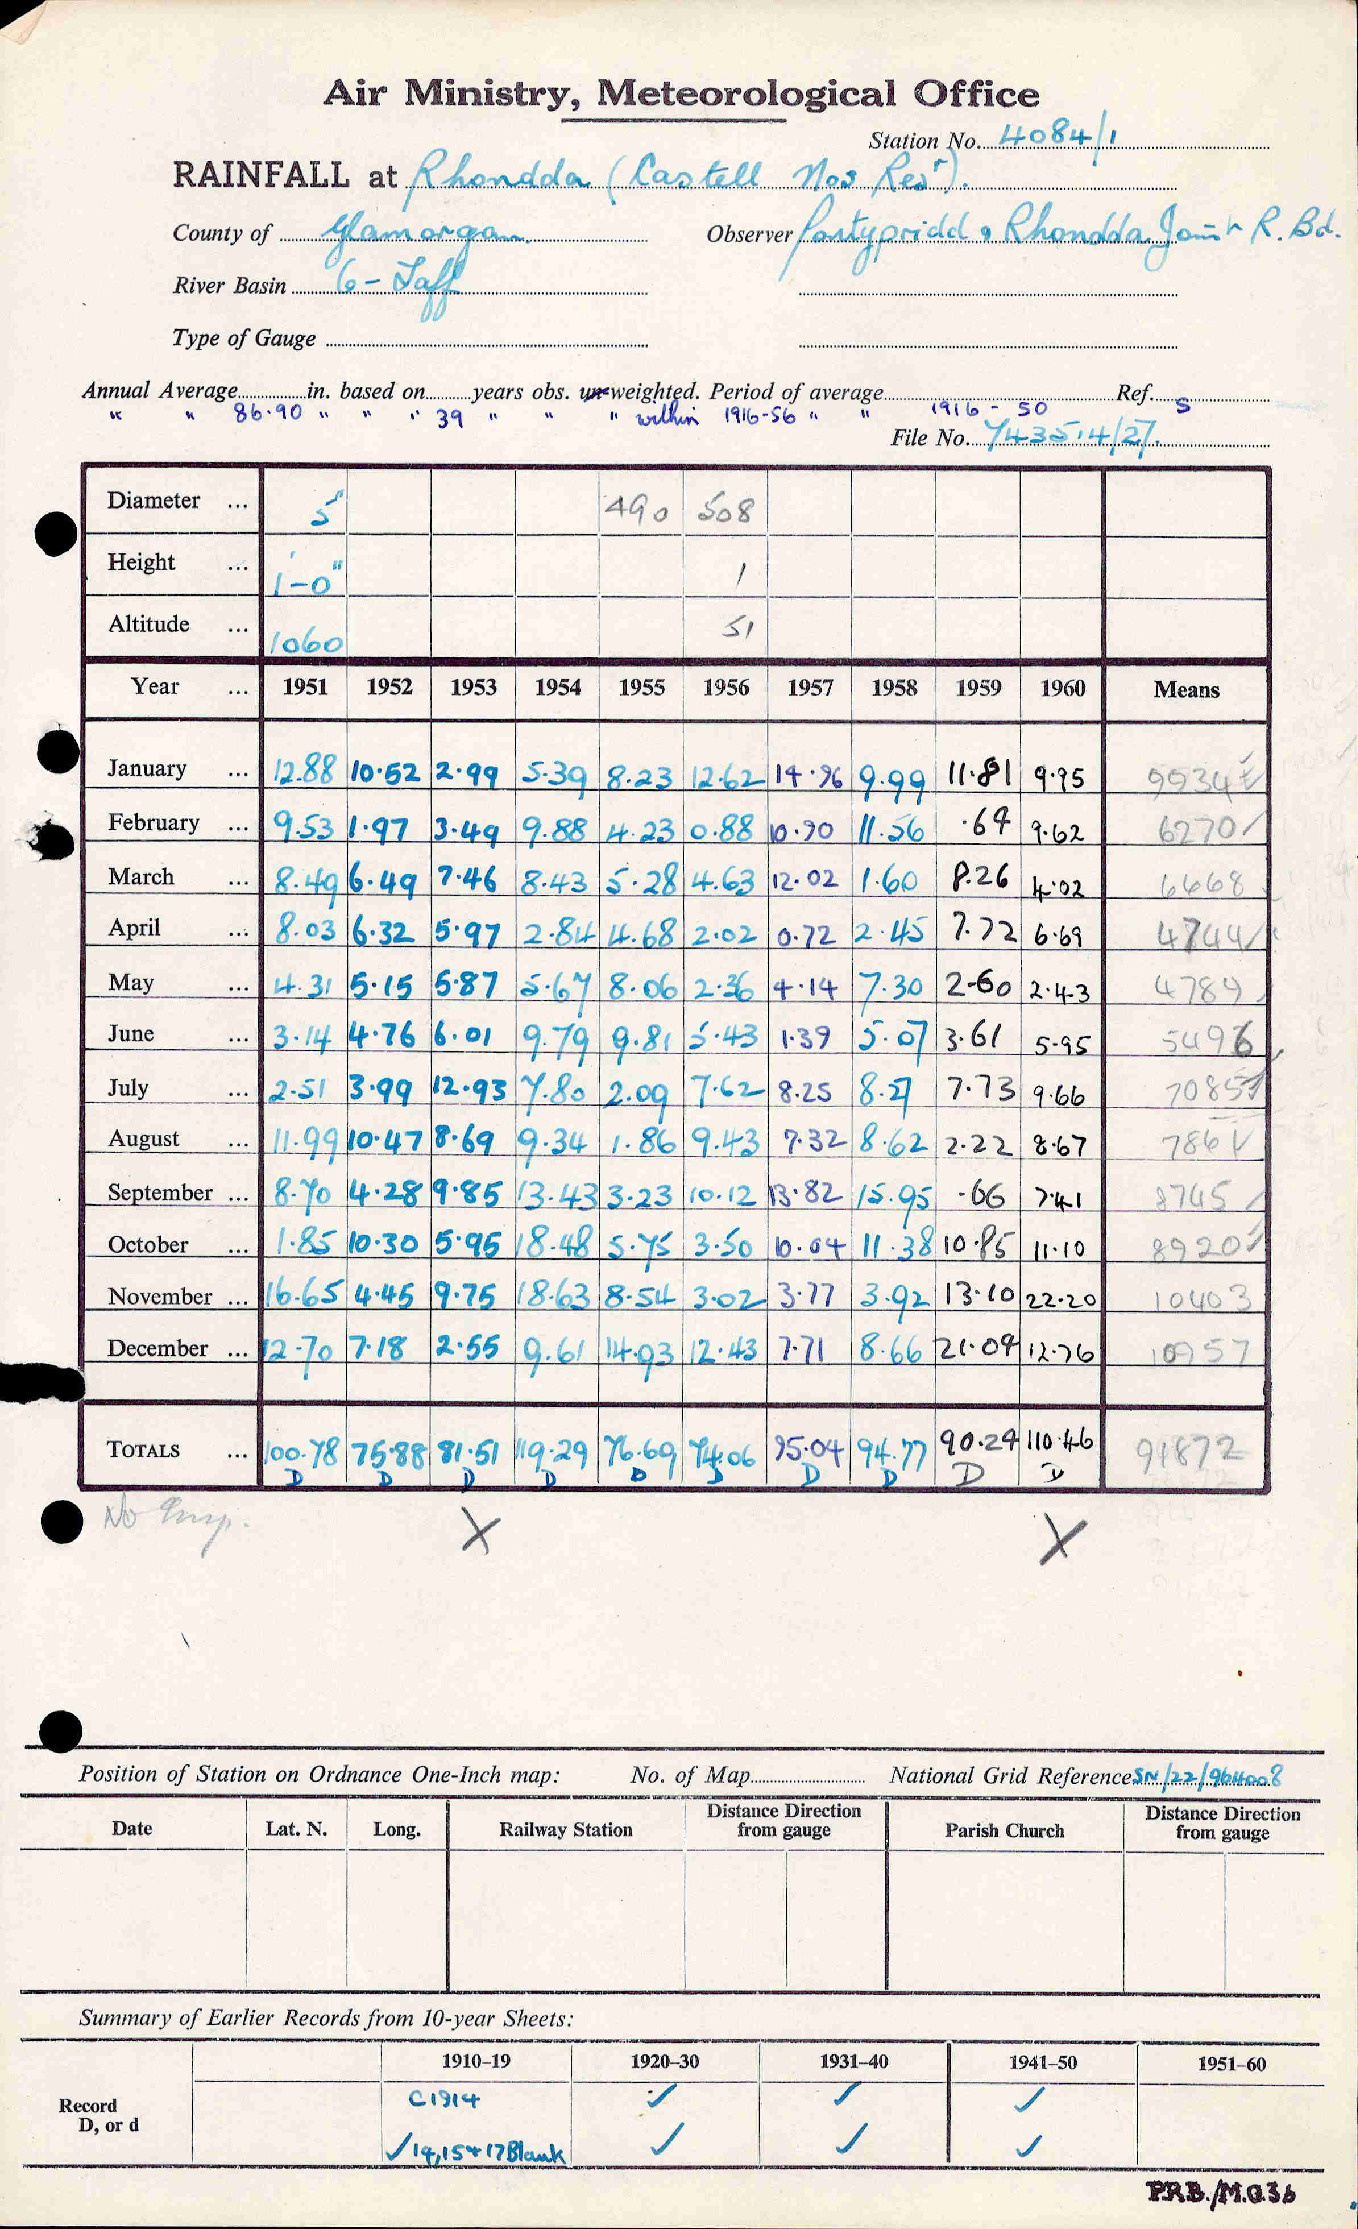 Air Ministry, Meteorological Office
Station No. 4084/1
RAINFALL at Rhondda (Castell Nos Resr).
County of Glamorgan Observer Pontypridd & Rhondda Joint R. Bd.
River Basin 6 - Taff
Type of Gauge
Annual Average in. based on years obs. un-weighted. Period of average Ref. S
" " 86.90 " " " 39 " " " within 1916-56 " " 1916-50
File No. 743514/27.
Diameter ... 5" 490 508
Height ... 1'-0" 1
Altitude ... 1060 51
Year ... 1951 1952 1953 1954 1955 1956 1957 1958 1959 1960 Means
January ... 12.88 10.52 2.99 5.39 8.23 12.62 14.96 9.99 11.81 9.95 9934
February ... 9.53 1.97 3.49 9.88 4.23 0.88 10.90 11.56 .64 9.62 6270
March ... 8.49 6.49 7.46 8.43 5.28 4.63 12.02 1.60 8.26 4.02 6668
April ... 8.03 6.32 5.97 2.84 4.68 2.02 0.72 2.45 7.72 6.69 4744
May ... 4.31 5.15 5.87 5.67 8.06 2.36 4.14 7.30 2.60 2.43 4789
June ... 3.14 4.76 6.01 9.79 9.81 5.43 1.39 5.07 3.61 5.95 5496
July ... 2.51 3.99 12.93 7.80 2.09 7.62 8.25 8.27 7.73 9.66 7085
August ... 11.99 10.47 8.69 9.34 1.86 9.43 7.32 8.62 2.22 8.67 7861
September ... 8.70 4.28 9.85 13.43 3.23 10.12 13.82 15.95 .66 7.41 8745
October ... 1.85 10.30 5.95 18.48 5.75 3.50 10.04 11.38 10.85 11.10 8920
November ... 16.65 4.45 9.75 18.63 8.54 3.02 3.77 3.92 13.10 22.20 10403
December ... 12.70 7.18 2.55 9.61 14.93 12.43 7.71 8.66 21.09 12.76 10957
TOTALS ... 100.78 75.88 81.51 119.29 76.69 74.06 95.04 94.77 90.29 110.46 91872
D D D D D D D D D D
No X X
Position of Station on Ordnance One-Inch map: No. of Map National Grid Reference SN/22/964008
Date Lat. N. Long. Railway Station Distance Direction from gauge Parish Church Distance Direction from gauge
Summary of Earlier Records from 10-year Sheets:
1910–19 1920–30 1931–40 1941–50 1951–60
Record C1914 ✓ ✓ ✓
D, or d ✓ 14, 15 + 17 Blank ✓ ✓ ✓
P.R.B./M.O.36